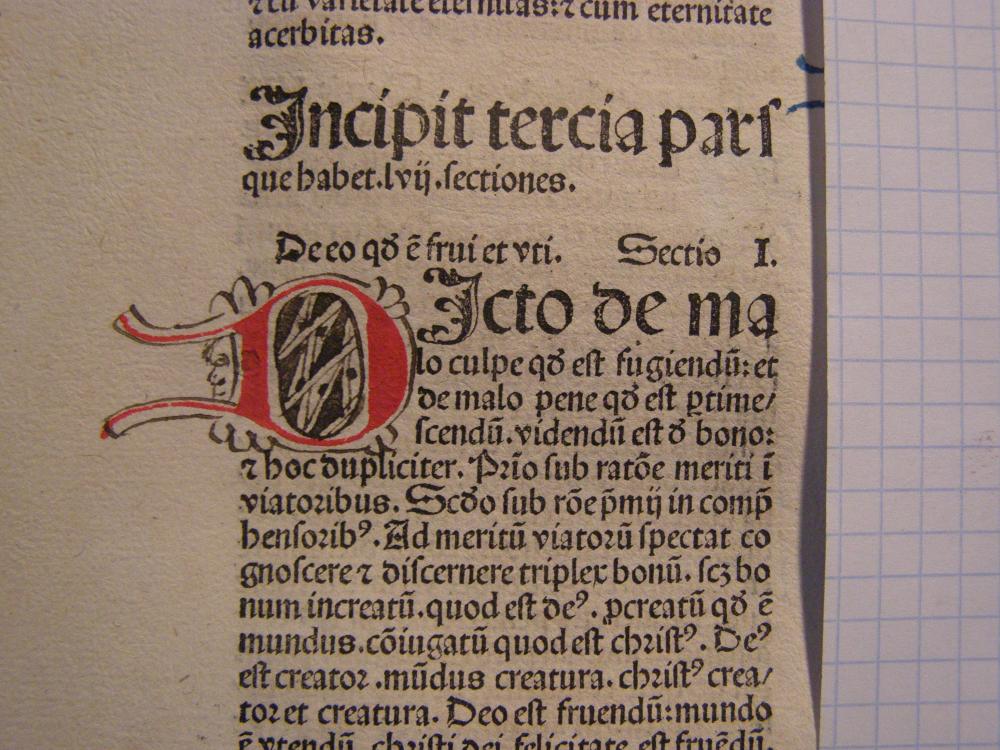 ⁊ cū varietate eternitas:⁊ cum eternitate
acerbitas.
Incipit tercia parſ
que habet.lvij.ſectiones.
De eo qđ ē frui et vti. Sectio I.
DIcto de ma
lo culpe qđ eſt fugiendū:et
de malo pene qđ eſt ꝑtime/
ſcendū.videndū eſt đ bono:
⁊ hoc dupliciter. Prīo ſub ratōe meriti ī
viatoribus. Scđo ſub rōe p̄mij in comp̄
henſoribꝰ. Ad meritū viatorū ſpectat co
gnoſcere ⁊ diſcernere triplex bonū. ſcꝫ bo
num increatū.quod eſt deꝰ. ꝓcreatū qđ ē
mundus.cōiugatū quod eſt chriſtꝰ. Deꝰ
eſt creator .mūdus creatura. chriſtꝰ crea/
tor et creatura. Deo eſt fruendū:mundo
ē vtendū. chriſti dei felicitate eſt fruēdū.